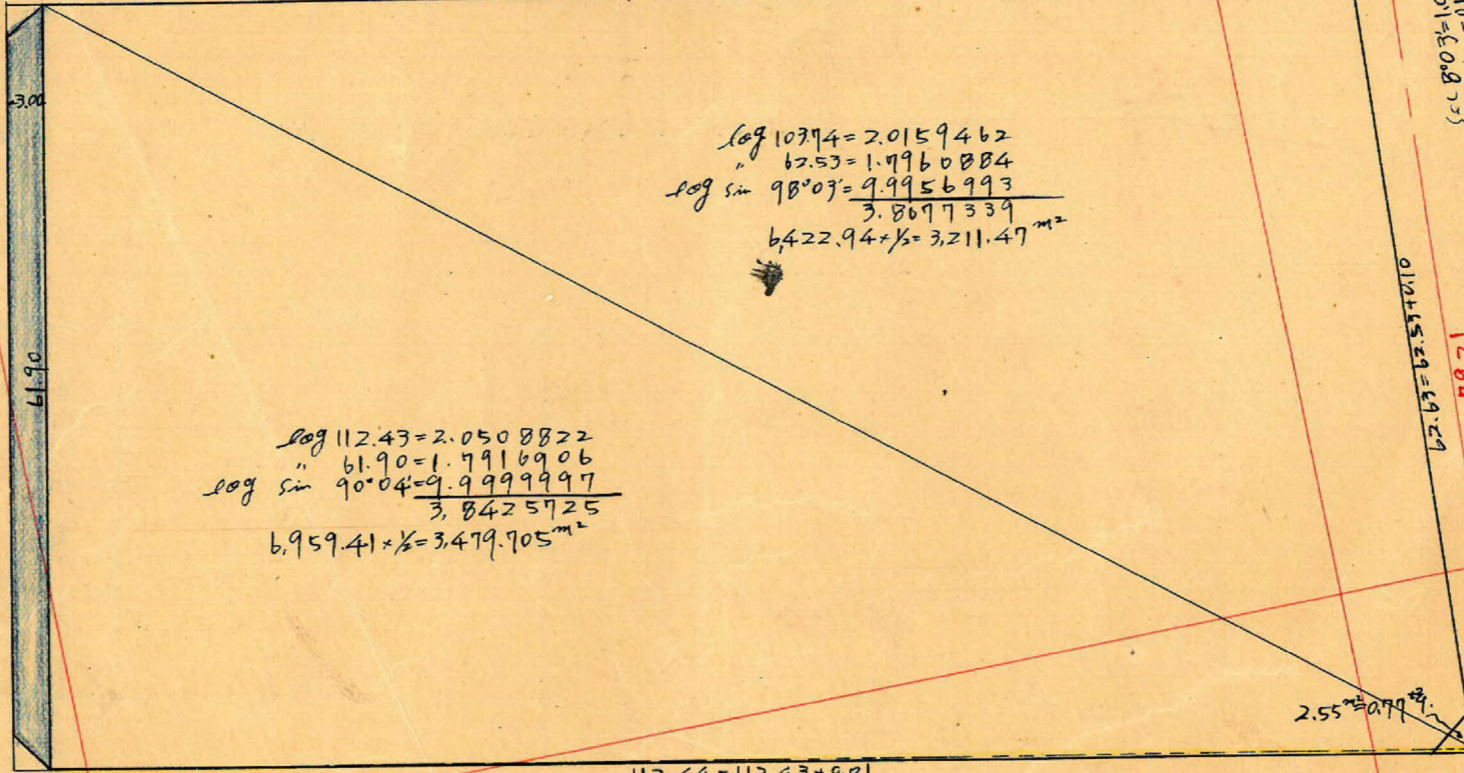 3.00
log 103.74=2.0159462
〃 62.53=1.7960884
log sin 98°03′=9.9956993
3.8077339
6,422.94×½=3,211.47m²
61.90
log 112.43=2.0508822
〃 61.90=1.7916906
log sin 90°04′=9.9999997
3,8425725
6,959.41×½=3,479.705m²
62.63=62.53+0.10
2.55m²=0.77坪